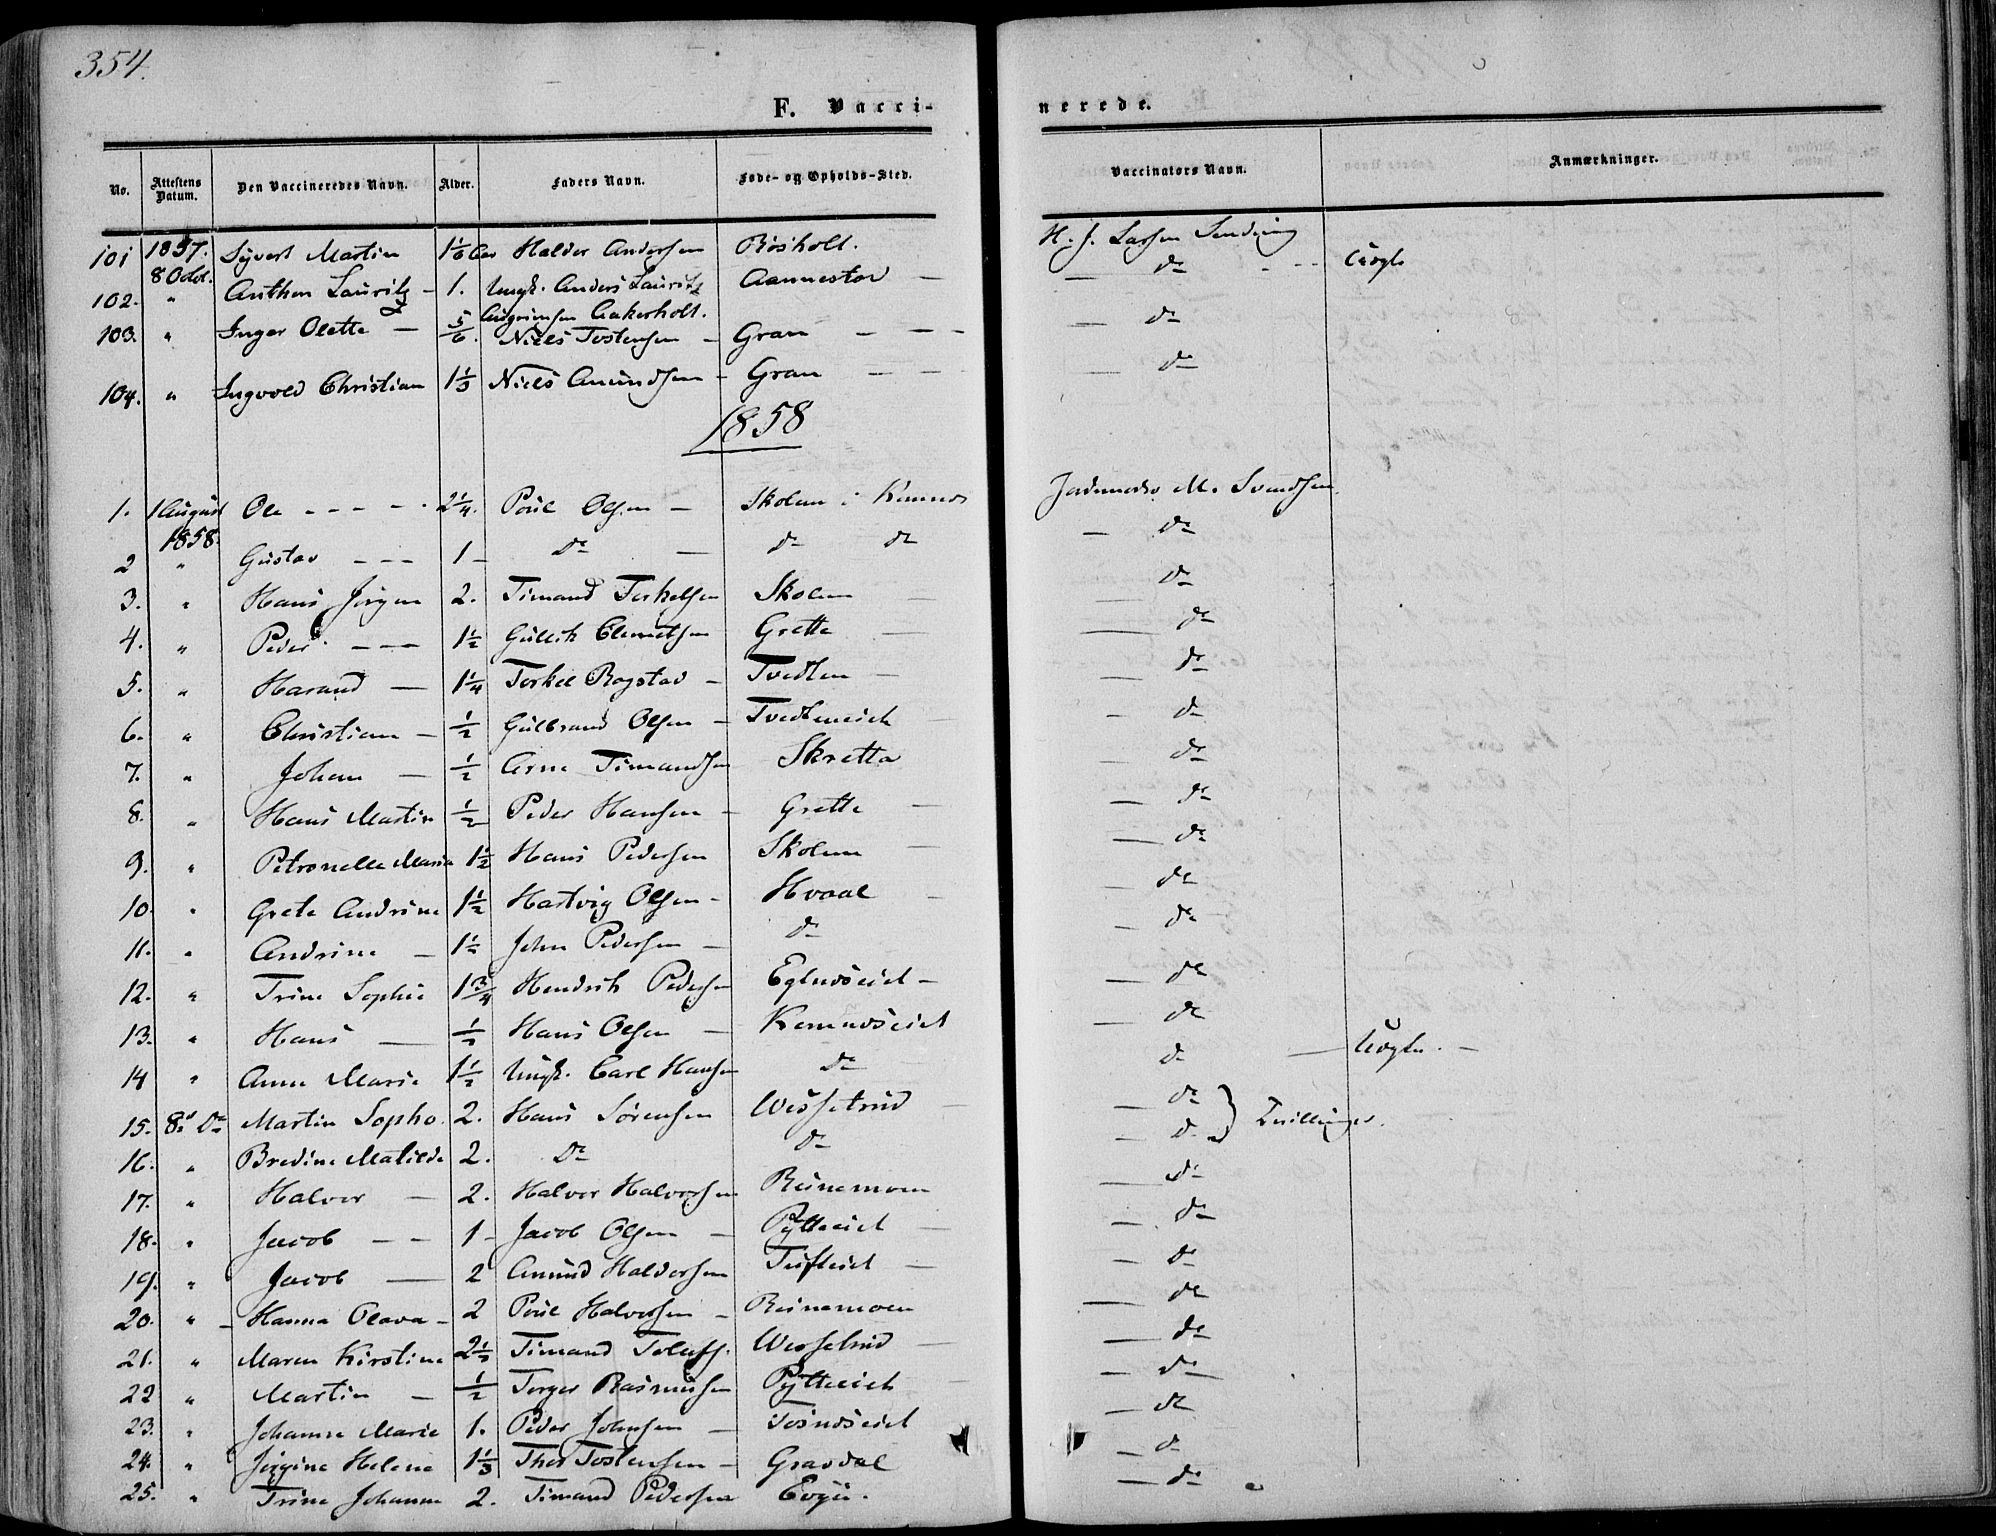 354.
F. Vacci-
nerede.
No. Attestens Datum. Den Vaccineredes Navn. Alder. Faders Navn. Føde- og Opholds-Sted. Vaccinators Navn. Anmærkninger.
101 1857. 8 Octob. Syvert Martin 1 1/6 Halvor Andersen Bösholt. H. J. Larsen
102. " Anthon Lauritz - 1. Ungk. Anders Lauritz Aannestad — — dº Uægte
Aakerholt.
103. " Inger Olette — 5/6. Niels Tostensen - Gran — — — dº
104. " Ingvold Christian 1 1/3 Niels Amundsen - Gran — — — dº
1858
1. 1 August 1858. Ole - - - - 2 1/4. Poul Olsen — Skolem i Jordemoder M. Svendsen
2 " Gustav - - - 1 - Dº — dº dº — dº
3. " Hans Jörgen 2. Timand Torkelsen Skolem — dº
4. " Peder - - - 1 1/2 Gullik Clemetsen Grette — dº
5. " Harand — 1 1/4 Torkel Rogstad - Tvedten — dº
6. " Christian - 1/2 Gulbrand Olsen - Tvedteneiet — dº
7. " Johan — 1/2 Arne Timandsen Skretta — dº
8. " Hans Martin 1/2 Peder Hansen - Grette — dº
9. " Petronelle Maria 1 1/2 Hans Pedersen Skolem — dº
10. " Grete Andrine 1 1/2 Hartvig Olsen - Hvaal — dº
11. " Andrine — 1 1/2 John Pedersen — dº — dº
12. " Trine Sophie 1 3/4 Hendrik Pedersen — dº
13. " Hans — 1/2 Hans Olsen — — dº
14 " Anne Marie 1 1/2 Ungk. Carl Hansen dº dº — Uægte. —
15. 8de Dº Martin Sopho. 2. Hans Sörensen — dº } Tvillinger.
16. " Bredine Matilde 2. Dº dº — dº
17. " Halvor — 2. Halvor Halvorsen Runemoen — dº
18. " Jacob — — 1 - Jacob Olsen — Pytteeiet — dº
19. " Jacob — 2 Amund Halvorsen Tufteiet — dº
20. " - Hanna Olava - 2 Poul Halvorsen - Runemoen — dº
21. " Maren Kirstine 2 1/2 Timand Tolefs. — dº
22 " Martin — 1/2 Torger Rasmusen Pytteeiet — dº
23. " Johanne Marie 1. Peder Johnsen — — dº
24. " Jörgine Helene 1 1/3 Thor Tostensen - Gravdal — dº
25. " Trine Johanne 2. Timand Pedersen Evju. — dº